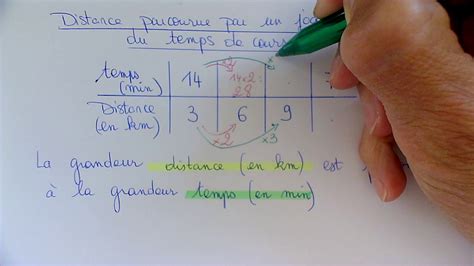 Distance parcourue par un
du temps de cours
temps (min) 14 14×2= 28
Distance (en km) 3 6 9
×2 ×3
La grandeur distance (en km) est
à la grandeur temps (en min)